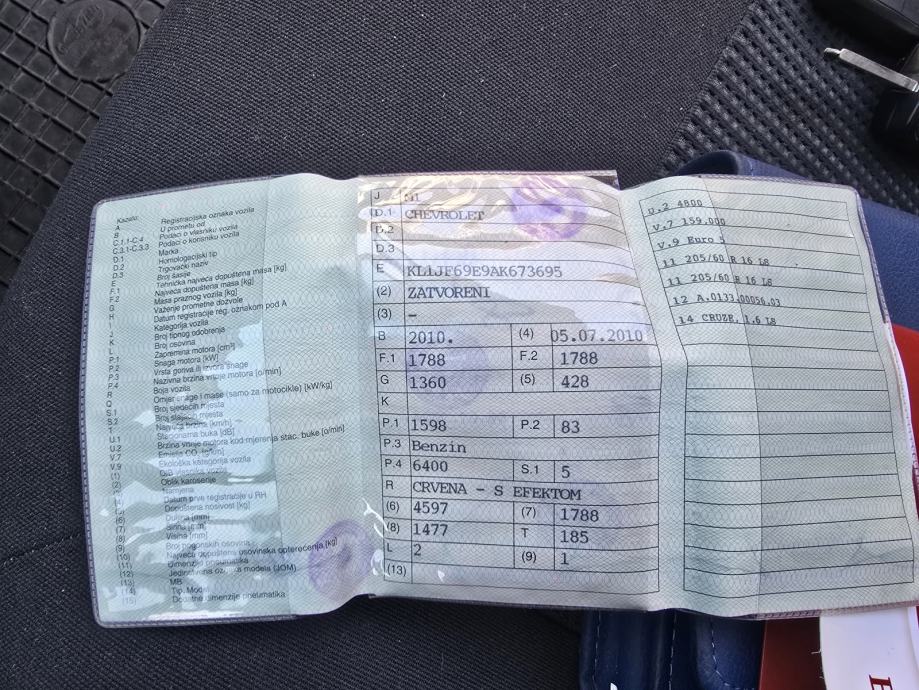 Kazalo:
A Registracijska oznaka vozila
B U prometu od
C.1.1-C.4 Podaci o vlasniku vozila
C.3.1-C.3.3 Podaci o korisniku vozila
D.1 Marka
D.2 Homologacijski tip
D.3 Trgovački naziv
E Broj šasije
F.1 Tehnička najveća dopuštena masa [kg]
F.2 Najveća dopuštena masa [kg]
G Masa praznog vozila [kg]
H Važenje prometne dozvole
I Datum registracije reg. oznakom pod A
J Kategorija vozila
K Broj tipnog odobrenja
L Broj osovina
P.1 Zapremina motora [cm³]
P.2 Snaga motora [kW]
P.3 Vrsta goriva ili izvora snage
P.4 Nazivna brzina vrtnje motora [o/min]
R Boja vozila
Q Omjer snage i mase (samo za motocikle) [kW/kg]
S.1 Broj sjedećih mjesta
S.2 Broj stajaćih mjesta
T Najveća brzina [km/h]
U.1 Stacionarna buka [dB]
U.2 Brzina vrtnje motora kod mjerenja stac. buke [o/min]
V.7 Emisija CO₂ [g/km]
V.9 Ekološka kategorija vozila
(1)
(2) Oblik karoserije
Namjena
Datum prve registracije u RH
(5) Dopuštena nosivost [kg]
(6) Dužina [mm]
(7) Širina [mm]
(8) Visina [mm]
(9) Broj pogonskih osovina
(10) Najveće dopuštena osovinska opterećenja [kg]
(11) dimenzije pneumatika
(12) modela (JOM)
(13) MB
(14) Tip, Model
(15) Dodatne dimenzije pneumatika
J M1
D.1 CHEVROLET
D.2
D.3
E KL1JF69E9AK673695
(2) ZATVORENI
(3) –
B 2010. (4) 05.07.2010
F.1 1788 F.2 1788
G 1360 (5) 428
K
P.1 1598 P.2 83
P.3 Benzin
P.4 6400 S.1 5
R CRVENA - S EFEKTOM
(6) 4597 (7) 1788
(8) 1477 T 185
L 2 (9) 1
(13)
U.2 4800
V.7 159.000
V.9 Euro 5
11 205/60 R 16 LS
11 205/60 R 16 LS
12 A.0133.00056.03
14 CRUZE, 1.6 LS